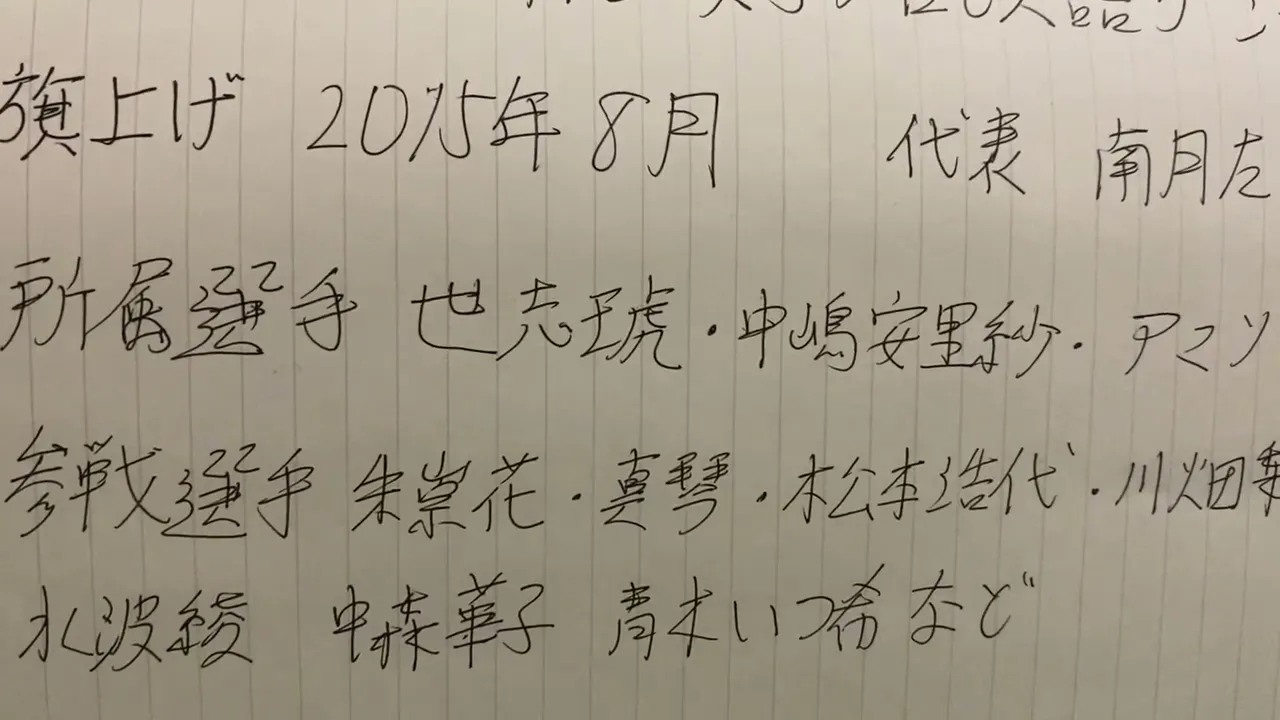 旗上げ 2015年8月 代表 南月
所属選手 世志琥・中嶋安里紗・アマゾ
参戦選手 朱崇花・真琴・松本浩代・川畑
水波綾 中森華子 青木いつ希など